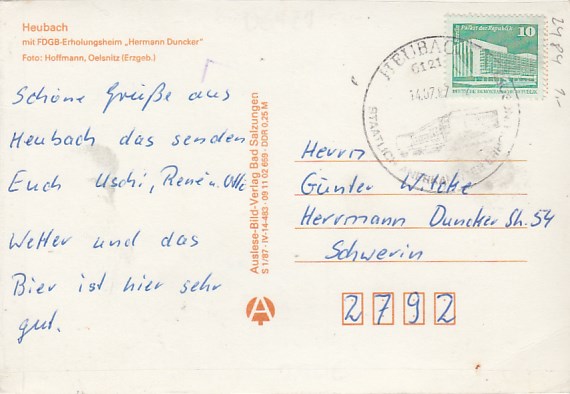 Heubach
mit FDGB-Erholungsheim „Hermann Duncker"
Foto: Hoffmann, Oelsnitz (Erzgeb.)
Schöne Grüße aus
Heubach das senden
Euch Uschi, René u. Olli
Wetter und das
Bier ist hier sehr
gut.
Auslese-Bild-Verlag Bad Salzungen
S 1/87 · IV-14-483 · 09 11 02 659 · DDR 0,25 M
A
HEUBACH
6121
14.07.87
STAATLICH ANERKANNTER
Palast der Republik
10
2484
Herrn
Günter Witcke
Herrmann Duncker Str. 54
Schwerin
2792